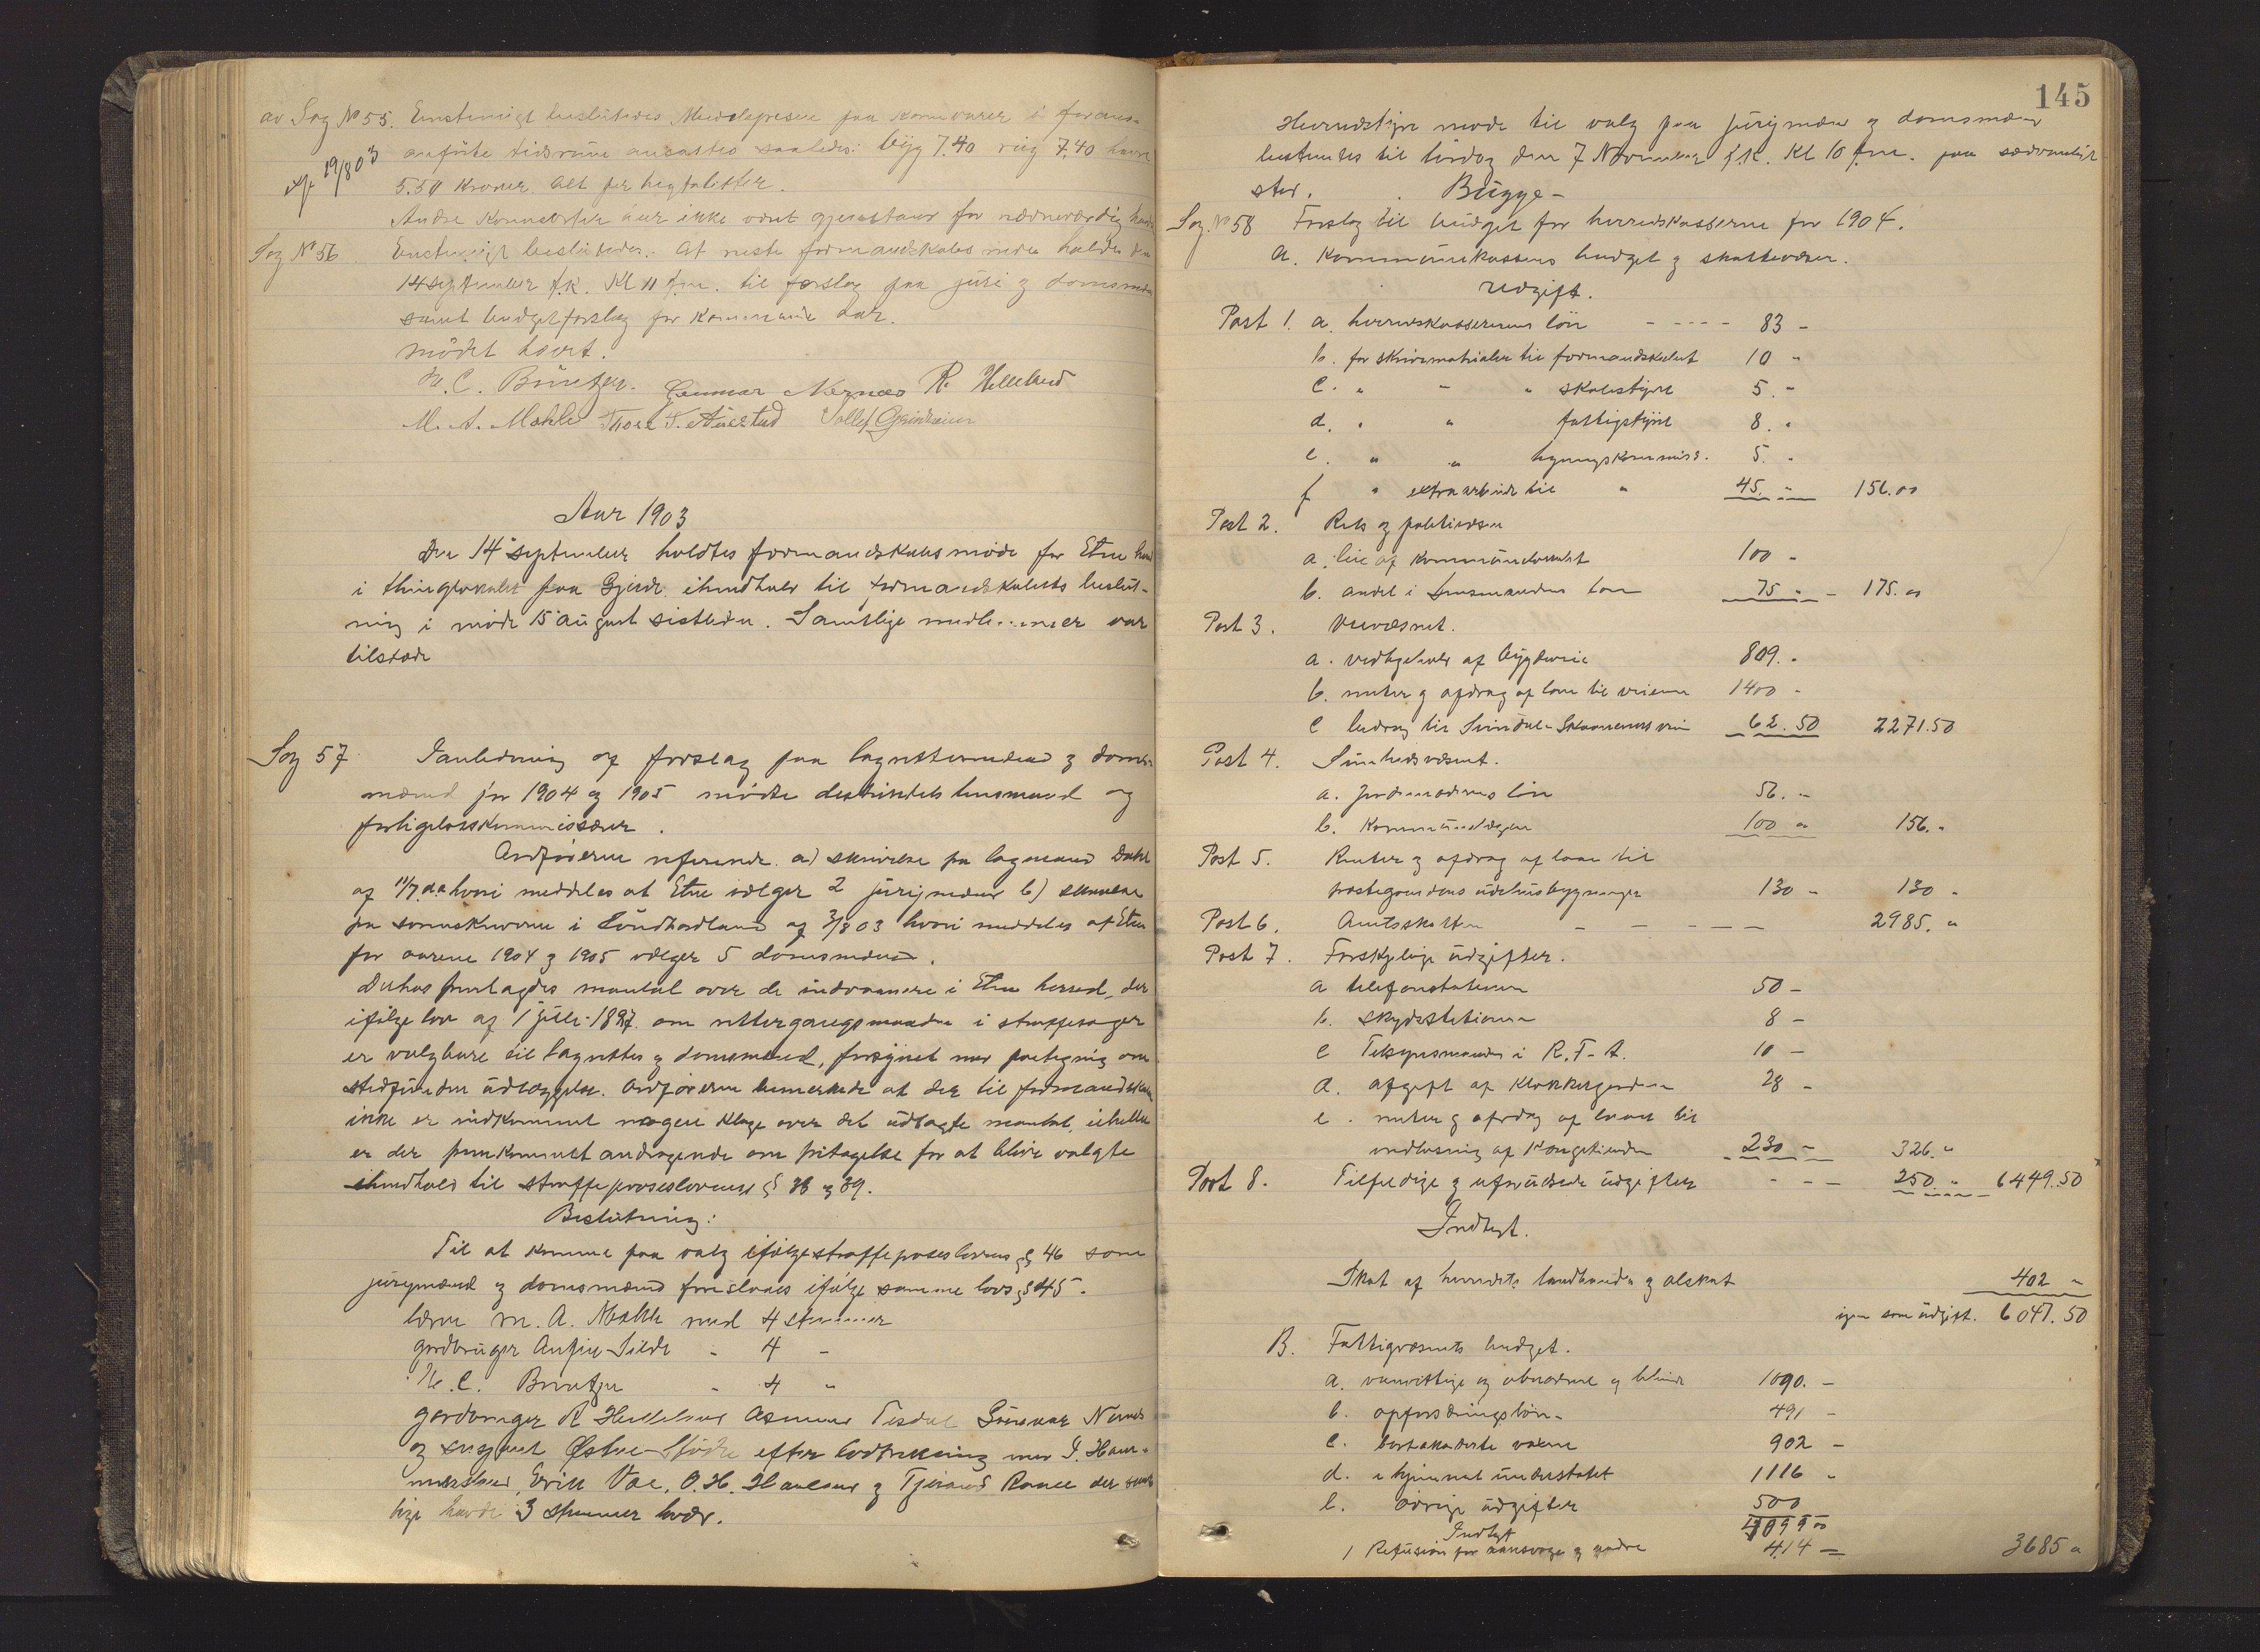 av Sag No 55. Enstemigt besluttedes Middelprisen paa kornvarer i foran-
anførte tidsrum ansattes saaledes: byg 7.40 rug 7.40 havre
19/8 03
5.50 Kroner. Alt per hegtoliter.
Andre Kornsorter har ikke været gjenstand for nævneværdig
Sag No 56. Enstemigt besluttedes: At neste formandskabsmøde holdes den
14 september f.k. Kl 11 f.m. til forslag paa juri og domsmænd
samt budgetforslag for kommende aar.
mødet hævet.
N. C. Brüntzen. Gunnar Nernæs R. Helleland
M. A. Mæhle Thore T. Aurestad Tollef Grindheim
Aar 1903
Den 14 september holdtes formandskabsmøde for Etne
i thinglokalet paa Gjerde ihendhold til formandskabets beslut-
ning i møde 15 august sistleden. Samtlige medlemmer var
tilstæde
Sag 57 Ianledning af forslag paa lagrettemænd og doms-
mænd for 1904 og 1905 mødte distriktets lensmand og
forligelseskommissærer.
Ordføreren refererede a) skrivelse fra lagmand Dahl
af 11/7 d.a hvori meddeles at Etne vælger 2 jurymænd b) skrivelse
fra sorenskriveren i Søndhordland af 3/8 03 hvori meddeles at Etne
for aarene 1904 og 1905 vælger 5 domsmænd.
Derhos fremlagdes mantal over de indvaanere i Etne herred, der
ifølge lov af 1 juli 1887 om rettergangsmaaden i straffesager
er valgbare til lagrettes og domsmænd, forsynet med paategning om
stedfunden udlæggelse. Ordføreren bemerkede at der til formandskabet
ikke er indkommet nogen klage over det udlagte mantal, iheller
er der fremkommet andragende om fritagelse for at blive valgte
ihendhold til straffeproseslovens § 38 og 39.
Beslutning:
Til at komme paa valg ifølge straffeproseslovens § 46 som
jurymænd og domsmænd foreslaaes ifølge samme lovs § 45.
lærer M. A. Mæhle med 4 stemmer
gardbruger Anfin Silde " 4 "
N. C. Brüntzen " 4 "
gardbruger R Helleland Asmund Tesdal Gunnar Nernæs
og Østreim efter lodtrækning med I. Ham-
mersland, Erik Vae, O. H. Haaland og Tjerand Ramce der samt-
lige havde 3 stemmer hvær.
145
Herredstyremøde til valg paa jurymænd og domsmænd
bestemtes til lørdag den 7 November f.k. Kl 10 f.m. paa sædvanligt
sted. Bugge-
Sag. No 58 Forslag til budget for herredskasserne for 1904.
A. Kommunekassens budget og skattevæsen.
Udgift.
Post 1. a. herredskassererens løn - - - - 83 -
b. for skrivematrialer til formandskabet 10 "
c. " - " skolestyret 5. -
d. " " fattigstyret 8. "
e. " " ligningskommiss. 5. "
f " extraarbeide til " 45. " 156.00
Post 2. Rets og politivæsen
a. leie af kommunelokalet 100 -
b. andel i lensmandens løn 75 " - 175.00
Post 3. Veivæsnet.
a. vedligehold af bygdeveie 809. "
b. renter og afdrag af laan til veiene 1400 -
c bidrag til Simdal-Skaanevikveien 62.50 2271.50
Post 4. Sundhedsvæsnet.
a. jordmoderens løn 56. -
b. Kommunelægen 100 " 156. "
Post 5. Renter og afdrag af laan til
præstegaardens udehusbygninger 130 - 130 "
Post 6. Amtsskatten - - - - - 2985. "
Post 7. Forskjelige udgifter.
a telefonstationen 50 -
b. skydsstationen 8 -
c Tilsynsmanden i R.T-A. 10 -
d. afgift af Klokkergarden 28 -
e. renter og afdrag af laanet til
indløsning af Kongetienden 230 - 326. "
Post 8. Tilfeldige og uforudsede udgifter - - - 250. " 6449.50
Indtegt.
Skat af herredets landhandel og ølskat 402 "
igen som udgift. 6047.50
B. Fattigvæsnets budget.
a. vanvittige og abnorme og blinde 1090. -
b. opfostringsløn - 491 -
c. bortakorderte voksne 902 -
d. i hjemmet understøttet 1116 "
e. øvrige udgifter 500
4099 00
Indtegt
1 Refusion for sindssyge og andre 414 - 3685 "